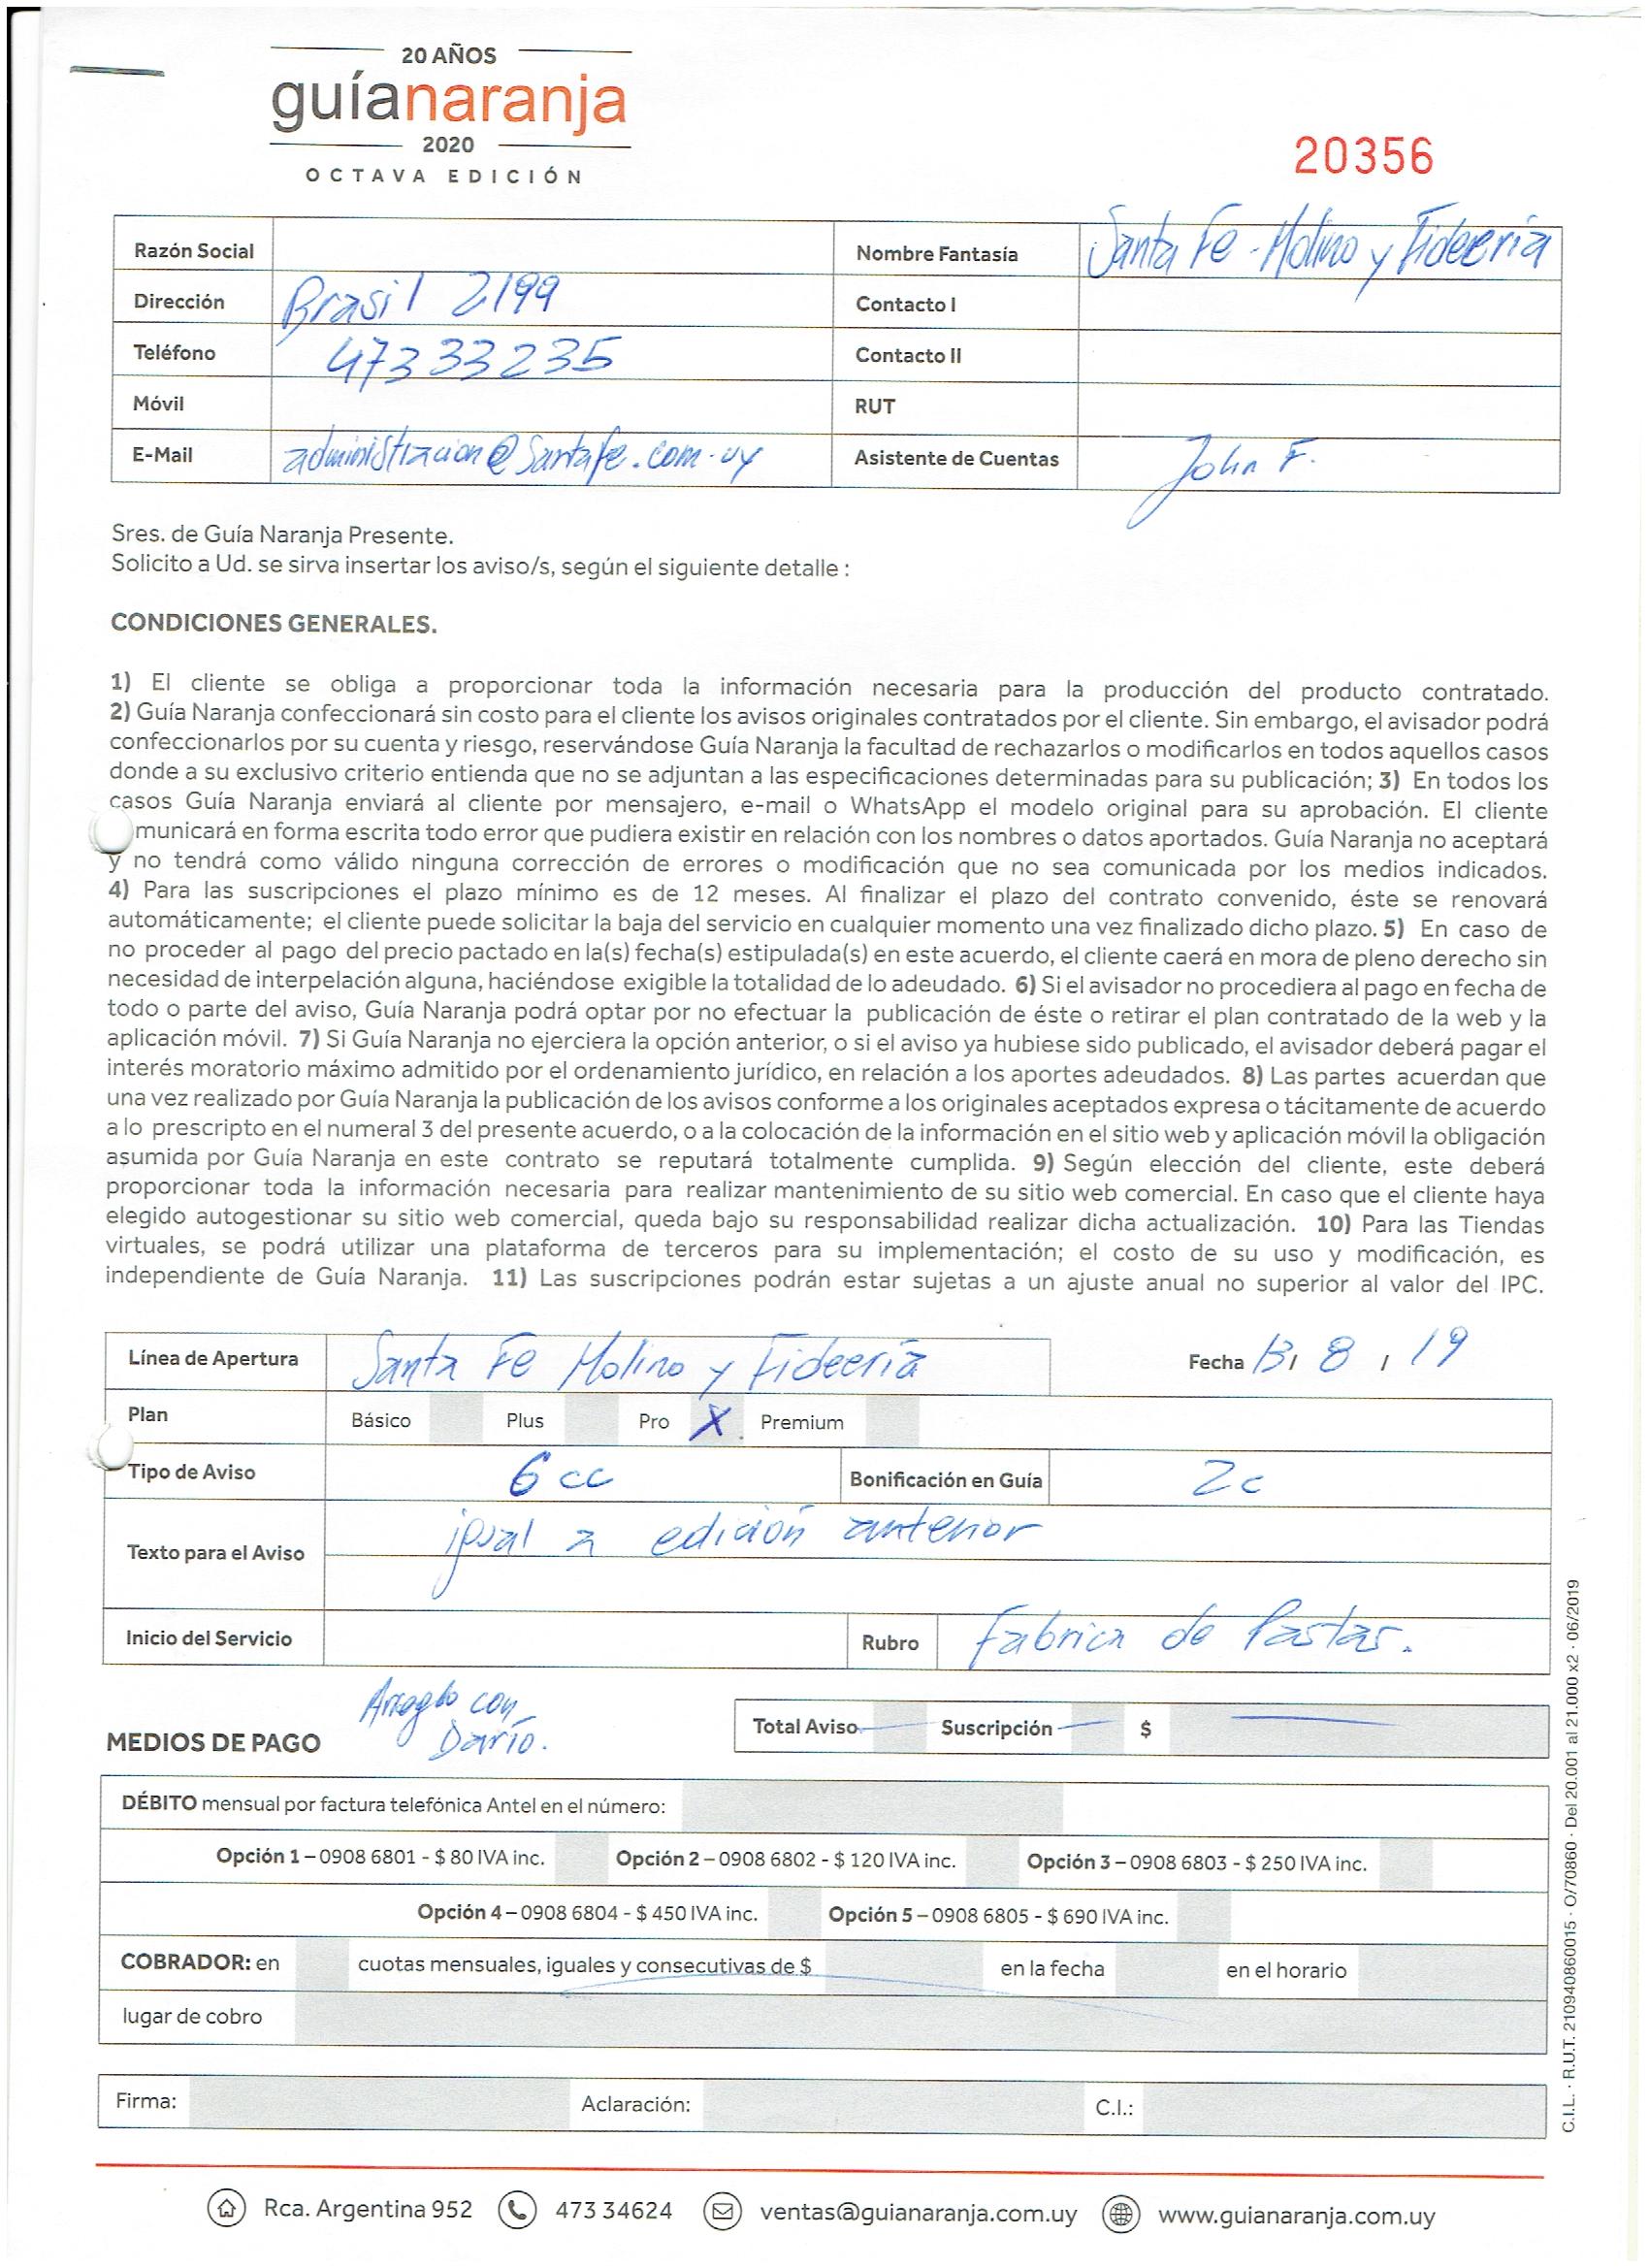 20 AÑOS
guíanaranja
2020
OCTAVA EDICIÓN
20356
Razón Social
Nombre Fantasía Santa Fe - Molino y Fideería
Dirección Brasil 2199
Contacto I
Teléfono 47333235
Contacto II
Móvil
RUT
E-Mail administracion@santafe.com.uy
Asistente de Cuentas John F.
Sres. de Guía Naranja Presente.
Solicito a Ud. se sirva insertar los aviso/s, según el siguiente detalle :
CONDICIONES GENERALES.
1) El cliente se obliga a proporcionar toda la información necesaria para la producción del producto contratado.
2) Guía Naranja confeccionará sin costo para el cliente los avisos originales contratados por el cliente. Sin embargo, el avisador podrá
confeccionarlos por su cuenta y riesgo, reservándose Guía Naranja la facultad de rechazarlos o modificarlos en todos aquellos casos
donde a su exclusivo criterio entienda que no se adjuntan a las especificaciones determinadas para su publicación; 3) En todos los
casos Guía Naranja enviará al cliente por mensajero, e-mail o WhatsApp el modelo original para su aprobación. El cliente
municará en forma escrita todo error que pudiera existir en relación con los nombres o datos aportados. Guía Naranja no aceptará
y no tendrá como válido ninguna corrección de errores o modificación que no sea comunicada por los medios indicados.
4) Para las suscripciones el plazo mínimo es de 12 meses. Al finalizar el plazo del contrato convenido, éste se renovará
automáticamente; el cliente puede solicitar la baja del servicio en cualquier momento una vez finalizado dicho plazo. 5) En caso de
no proceder al pago del precio pactado en la(s) fecha(s) estipulada(s) en este acuerdo, el cliente caerá en mora de pleno derecho sin
necesidad de interpelación alguna, haciéndose exigible la totalidad de lo adeudado. 6) Si el avisador no procediera al pago en fecha de
todo o parte del aviso, Guía Naranja podrá optar por no efectuar la publicación de éste o retirar el plan contratado de la web y la
aplicación móvil. 7) Si Guía Naranja no ejerciera la opción anterior, o si el aviso ya hubiese sido publicado, el avisador deberá pagar el
interés moratorio máximo admitido por el ordenamiento jurídico, en relación a los aportes adeudados. 8) Las partes acuerdan que
una vez realizado por Guía Naranja la publicación de los avisos conforme a los originales aceptados expresa o tácitamente de acuerdo
a lo prescripto en el numeral 3 del presente acuerdo, o a la colocación de la información en el sitio web y aplicación móvil la obligación
asumida por Guía Naranja en este contrato se reputará totalmente cumplida. 9) Según elección del cliente, este deberá
proporcionar toda la información necesaria para realizar mantenimiento de su sitio web comercial. En caso que el cliente haya
elegido autogestionar su sitio web comercial, queda bajo su responsabilidad realizar dicha actualización. 10) Para las Tiendas
virtuales, se podrá utilizar una plataforma de terceros para su implementación; el costo de su uso y modificación, es
independiente de Guía Naranja. 11) Las suscripciones podrán estar sujetas a un ajuste anual no superior al valor del IPC.
Línea de Apertura Santa Fe Molino y Fideería
Fecha 13/ 8 / 19
Plan Básico Plus Pro X Premium
Tipo de Aviso 6 cc Bonificación en Guía 2c
Texto para el Aviso igual a edición anterior
Inicio del Servicio Rubro Fabrica de Pastas.
Arreglo con
Darío.
MEDIOS DE PAGO
Total Aviso Suscripción $
DÉBITO mensual por factura telefónica Antel en el número:
Opción 1 – 0908 6801 - $ 80 IVA inc. Opción 2 – 0908 6802 - $ 120 IVA inc. Opción 3 – 0908 6803 - $ 250 IVA inc.
Opción 4 – 0908 6804 - $ 450 IVA inc. Opción 5 – 0908 6805 - $ 690 IVA inc.
COBRADOR: en cuotas mensuales, iguales y consecutivas de $ en la fecha en el horario
lugar de cobro
Firma: Aclaración: C.I.:
C.I.L. · R.U.T. 210940860015 · O/70860 · Del 20.001 al 21.000 x2 · 06/2019
Rca. Argentina 952 473 34624 ventas@guianaranja.com.uy www.guianaranja.com.uy